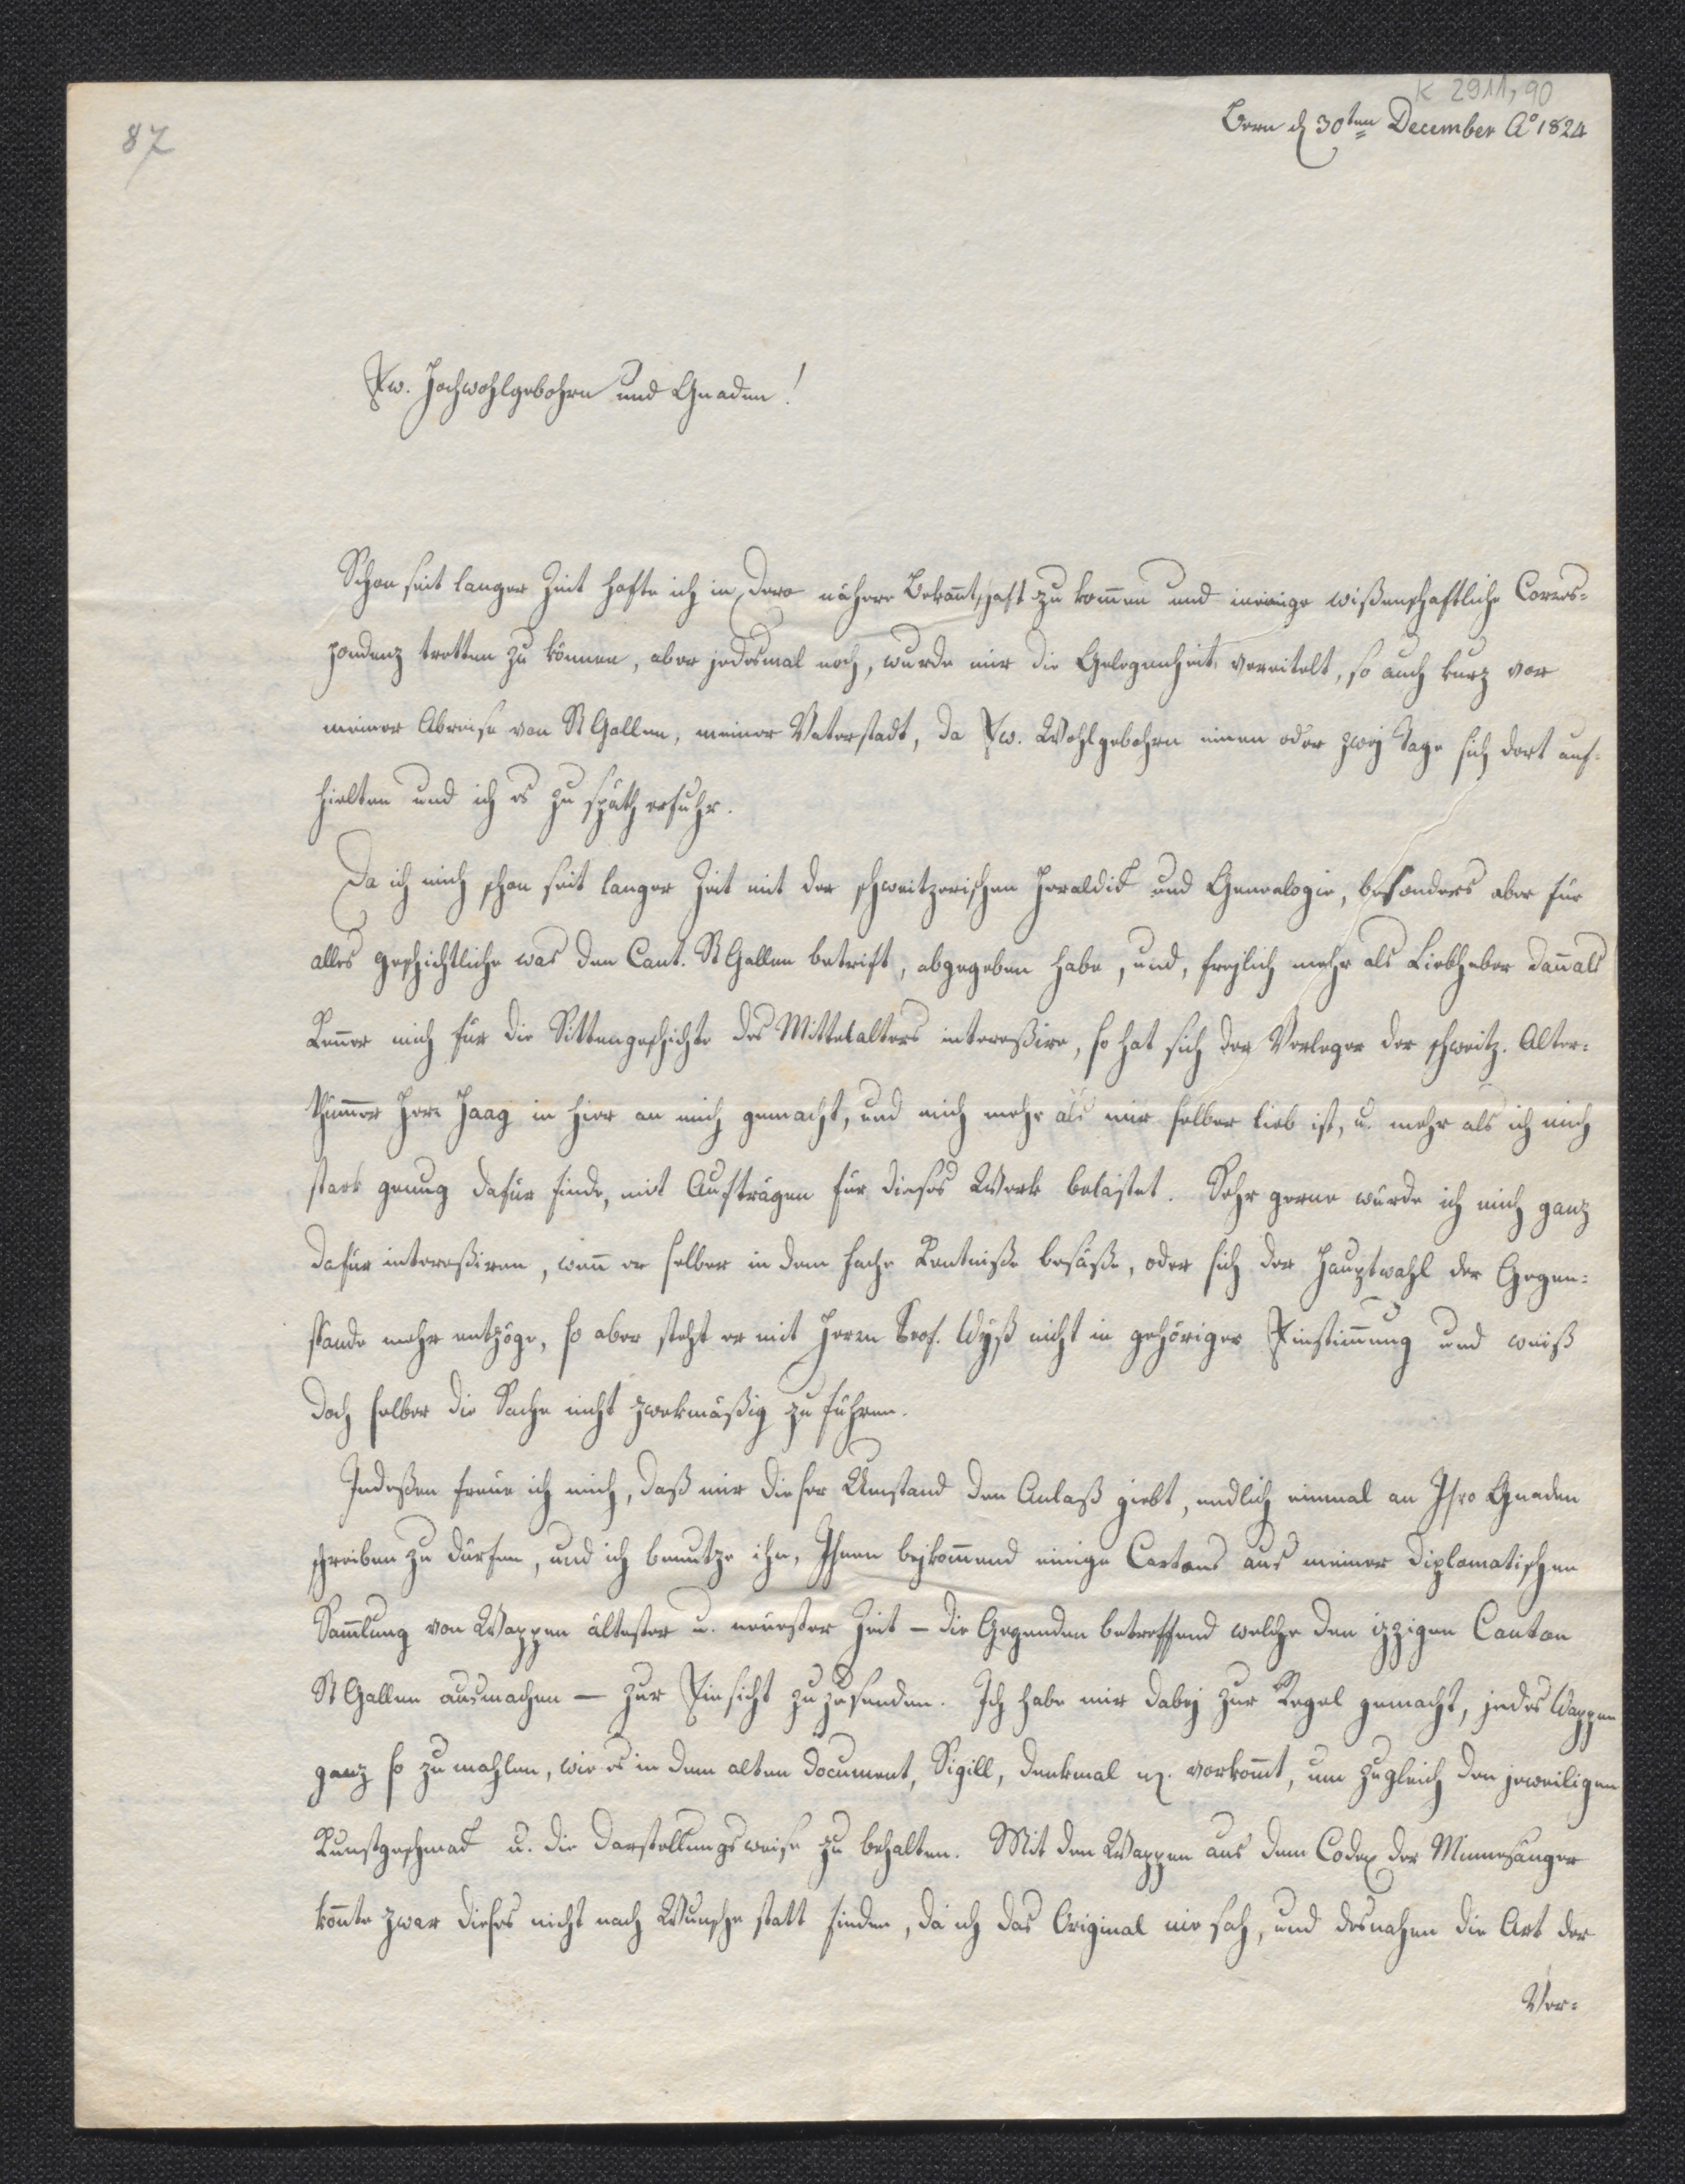 K 2911,90
87
Bern d 30ten December Ao 1824
Ew. Hochwohlgebohren und Gnaden!
Schon seit langer Zeit hofte ich in Dero nähere Bekan̄tschaft zu kom̄en und in einige wißenschaftliche Corres=
pondenz tretten zu können, aber jedesmal noch, wurde mir die Gelegenheit vereitelt, so auch kurz vor
meiner Abreise von St Gallen, meiner Vaterstadt, da Ew. Wohlgebohren einen oder zwej Tage sich dort auf=
hielten und ich es zu späth erfuhr.
Da ich mich schon seit langer Zeit mit der schweitzerischen Heraldik und Genealogie, besonders aber für
alles geschichtliche was den Cant. St Gallen betrift, abgegeben habe, und, frejlich mehr als Liebhaber dan̄ als
Ken̄er mich für die Sittengeschichte des Mittelalters intereßire, so hat sich der Verleger der schweitz. Alter=
thüm̄er Herr Haag in hier an mich gemacht, und mich mehr als mir selber lieb ist, u. mehr als ich mich
stark genug dafür finde, mit Aufträgen für dieses Werk belästet. Sehr gerne würde ich mich ganz
dafür intereßiren, wen̄ er selber in dem Fache Kentniße besäße, oder sich der Hauptwahl der Gegen=
stande mehr entzöge, so aber steht er mit Herrn Prof. Wyß nicht in gehöriger Einstim̄ung und weiß
doch selber die Sache nicht zwekmäßig zu führen.
Indeßen freue ich mich, daß mir dieser Umstand den Anlaß giebt, endlich einmal an Ihro Gnaden
schreiben zu dürfen, und ich benutze ihn, Ihnen bejkom̄end einige Cartons aus meiner diplomatischen
Sam̄lung von Wappen ältester u. neuester Zeit – die Gegenden betreffend welche den izzigen Canton
St Gallen ausmachen – zur Einsicht zuzusenden. Ich habe mir dabej zur Regel gemacht, jedes Wappen
ganz so zu mahlen, wie es in dem alten Document, Sigill, Denkmal vorkom̄t, um zugleich den jeweiligen
Kunstgeschmak u. die Darstellungsweise zu behalten. Mit den Wappen aus dem Codex der Minnesänger
kon̄te zwar dieses nicht nach Wunsche statt finden, da ich das Original nie sah, und desnahen die Art der
Ver=